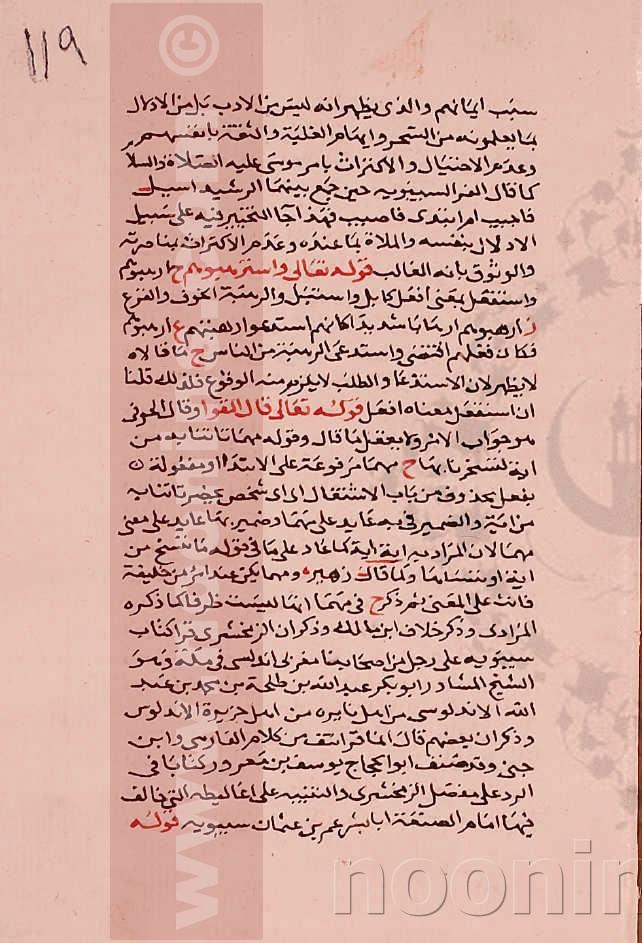 ١١٩
سبب ايمانهم والذى يظهر انه ليس من الادب بل من الادلال
بما يعلمونه من السحر وايهام الغلبة والثقة بانفسهم
وعدم الاحتفال والاكتراث بامر موسى عليه الصلاة والسلا
كما قال الفرا لسيبويه حين جمع بينهما الرشيد اسيل
فاجيب ام ابتدى فاصيب فهذا جا التخيير فيه على سبيل
الادلال بنفسه والملاة بما عنده وعدم الاكتراث بمناظرته
والوثوق بانه الغالب قوله تعالى واسترهبوهم ح ارهبوهم
واستفعل بمعنى افعل كابل واستبل والرهبة الخوف والفزع
ز ارهبوهم ارهابا شديدا كانهم استدعوا رهبتهم ع ارهبوهم
فكان فعلهم اقتضى واستدعى الرهبة من الناس ح ما قالاه
لا يظهر لان الاستدعا والطلب لا يلزم منه الوقوع فلذلك قلنا
ان استفعل معناه افعل قوله تعالى قال القوا وقال الحوفى
هو جواب الامر ولا يعقل ما قال وقوله مهما تاتنا به من
اية لتسحرنا بها ح مهما مرفوعة على الابتدا او مفعولة
بفعل محذوف من باب الاشتغال اى اى شخص يحضر تاتنا به
من اية والضمير فى به عايد على مهما وضمير بها عايد على معنى
مهما لان المراد به اية اية كما عاد على ما فى قوله ما ننسخ من
اية او ننساها وكما قال زهير ومهما يكن عند امرئ من خليقة
فانث على المعنى ثم ذكر ح فى مهما انها ليست ظرفا كما ذكره
المرادى وذكر خلاف ابن مالك وذكر ان الزمخشرى قرا كتاب
سيبويه على رجل من اصحابنا مغربى اندلسى فى مكة وهو
الشيخ المشاور ابو بكر عبد الله بن طلحة بن محمد بن عبد
الله الاندلوسى من اهل يابره من اهل جزيرة الاندلوس
وذكر ان بعضهم قال المفصل انتقى من كلام الفارسى وابن
جنى وقد صنف ابو الحجاج يوسف بن معزور كتابا فى
الرد على مفصل الزمخشرى والتنبيه على اغاليطه التى خالف
فيها امام الصنعة ابا بشر عمر بن عثمان سيبويه قوله
noonin